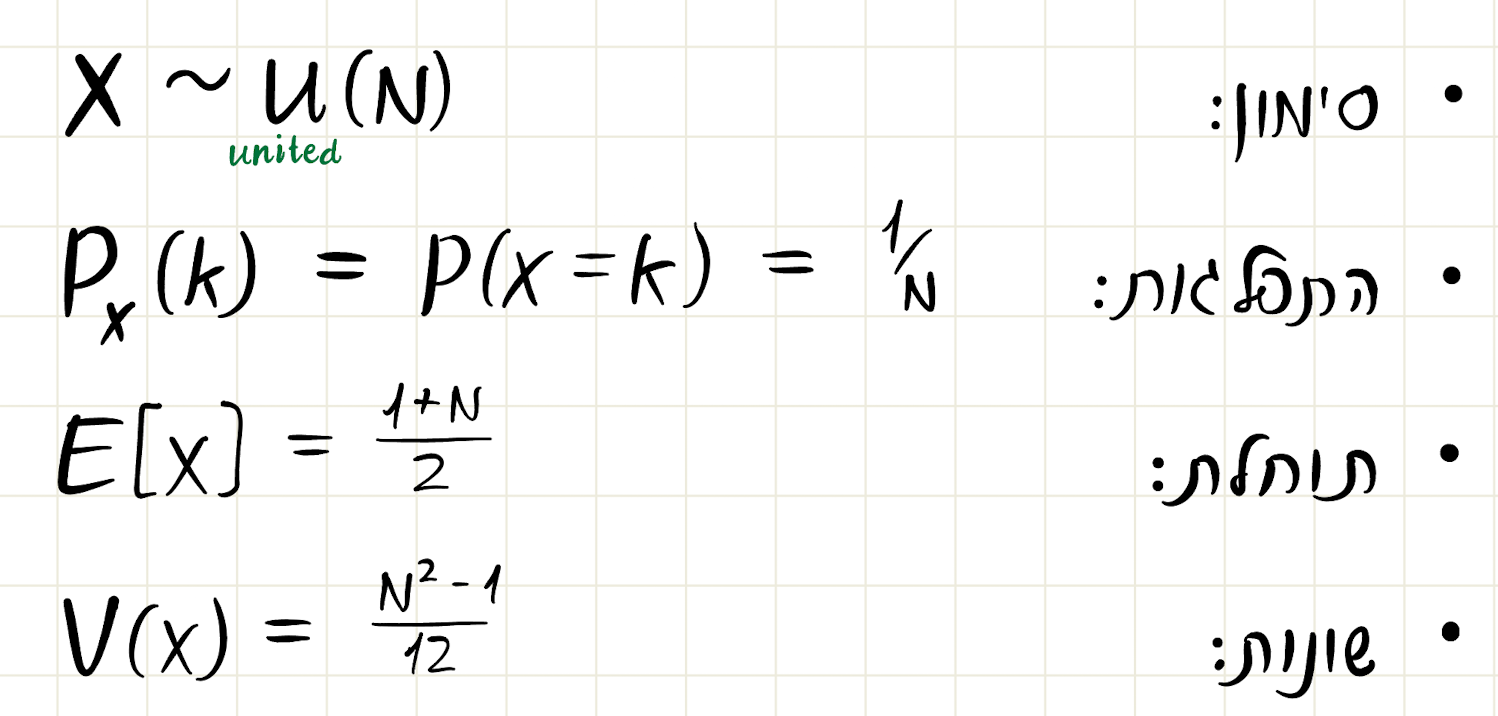 • סימון: X ~ U(N)
united
• התפלגות: Pₓ(k) = P(x=k) = 1/N
• תוחלת: E[x] = (1+N)/2
• שונות: V(x) = (N²-1)/12